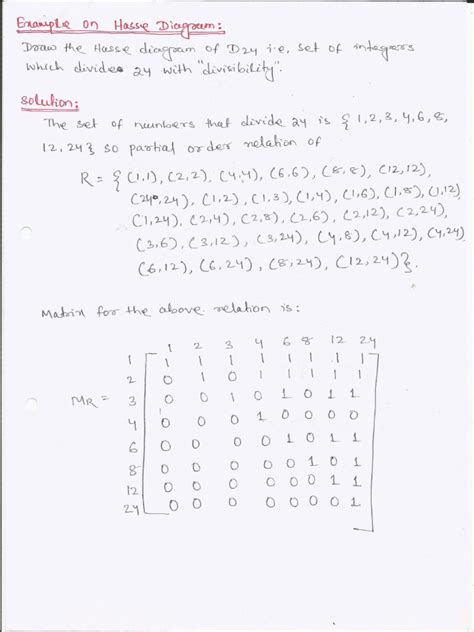 Example on Hasse Diagram:
Draw the Hasse diagram of D24 i.e. set of integers
which divides 24 with "divisibility".
Solution:
The set of numbers that divide 24 is { 1, 2, 3, 4, 6, 8,
12, 24 } so partial order relation of
R = { (1,1), (2,2), (4,4), (6,6), (8,8), (12,12),
(24,24), (1,2), (1,3), (1,4), (1,6), (1,8), (1,12)
(1,24), (2,4), (2,8), (2,6), (2,12), (2,24),
(3,6), (3,12), (3,24), (4,8), (4,12), (4,24)
(6,12), (6,24), (8,24), (12,24) }.
Matrix for the above relation is:
1 2 3 4 6 8 12 24
1 1 1 1 1 1 1 1 1
2 0 1 0 1 1 1 1 1
MR = 3 0 0 1 0 1 0 1 1
4 0 0 0 1 0 0 0 0
6 0 0 0 0 1 0 1 1
8 0 0 0 0 0 1 0 1
12 0 0 0 0 0 0 1 1
24 0 0 0 0 0 0 0 1